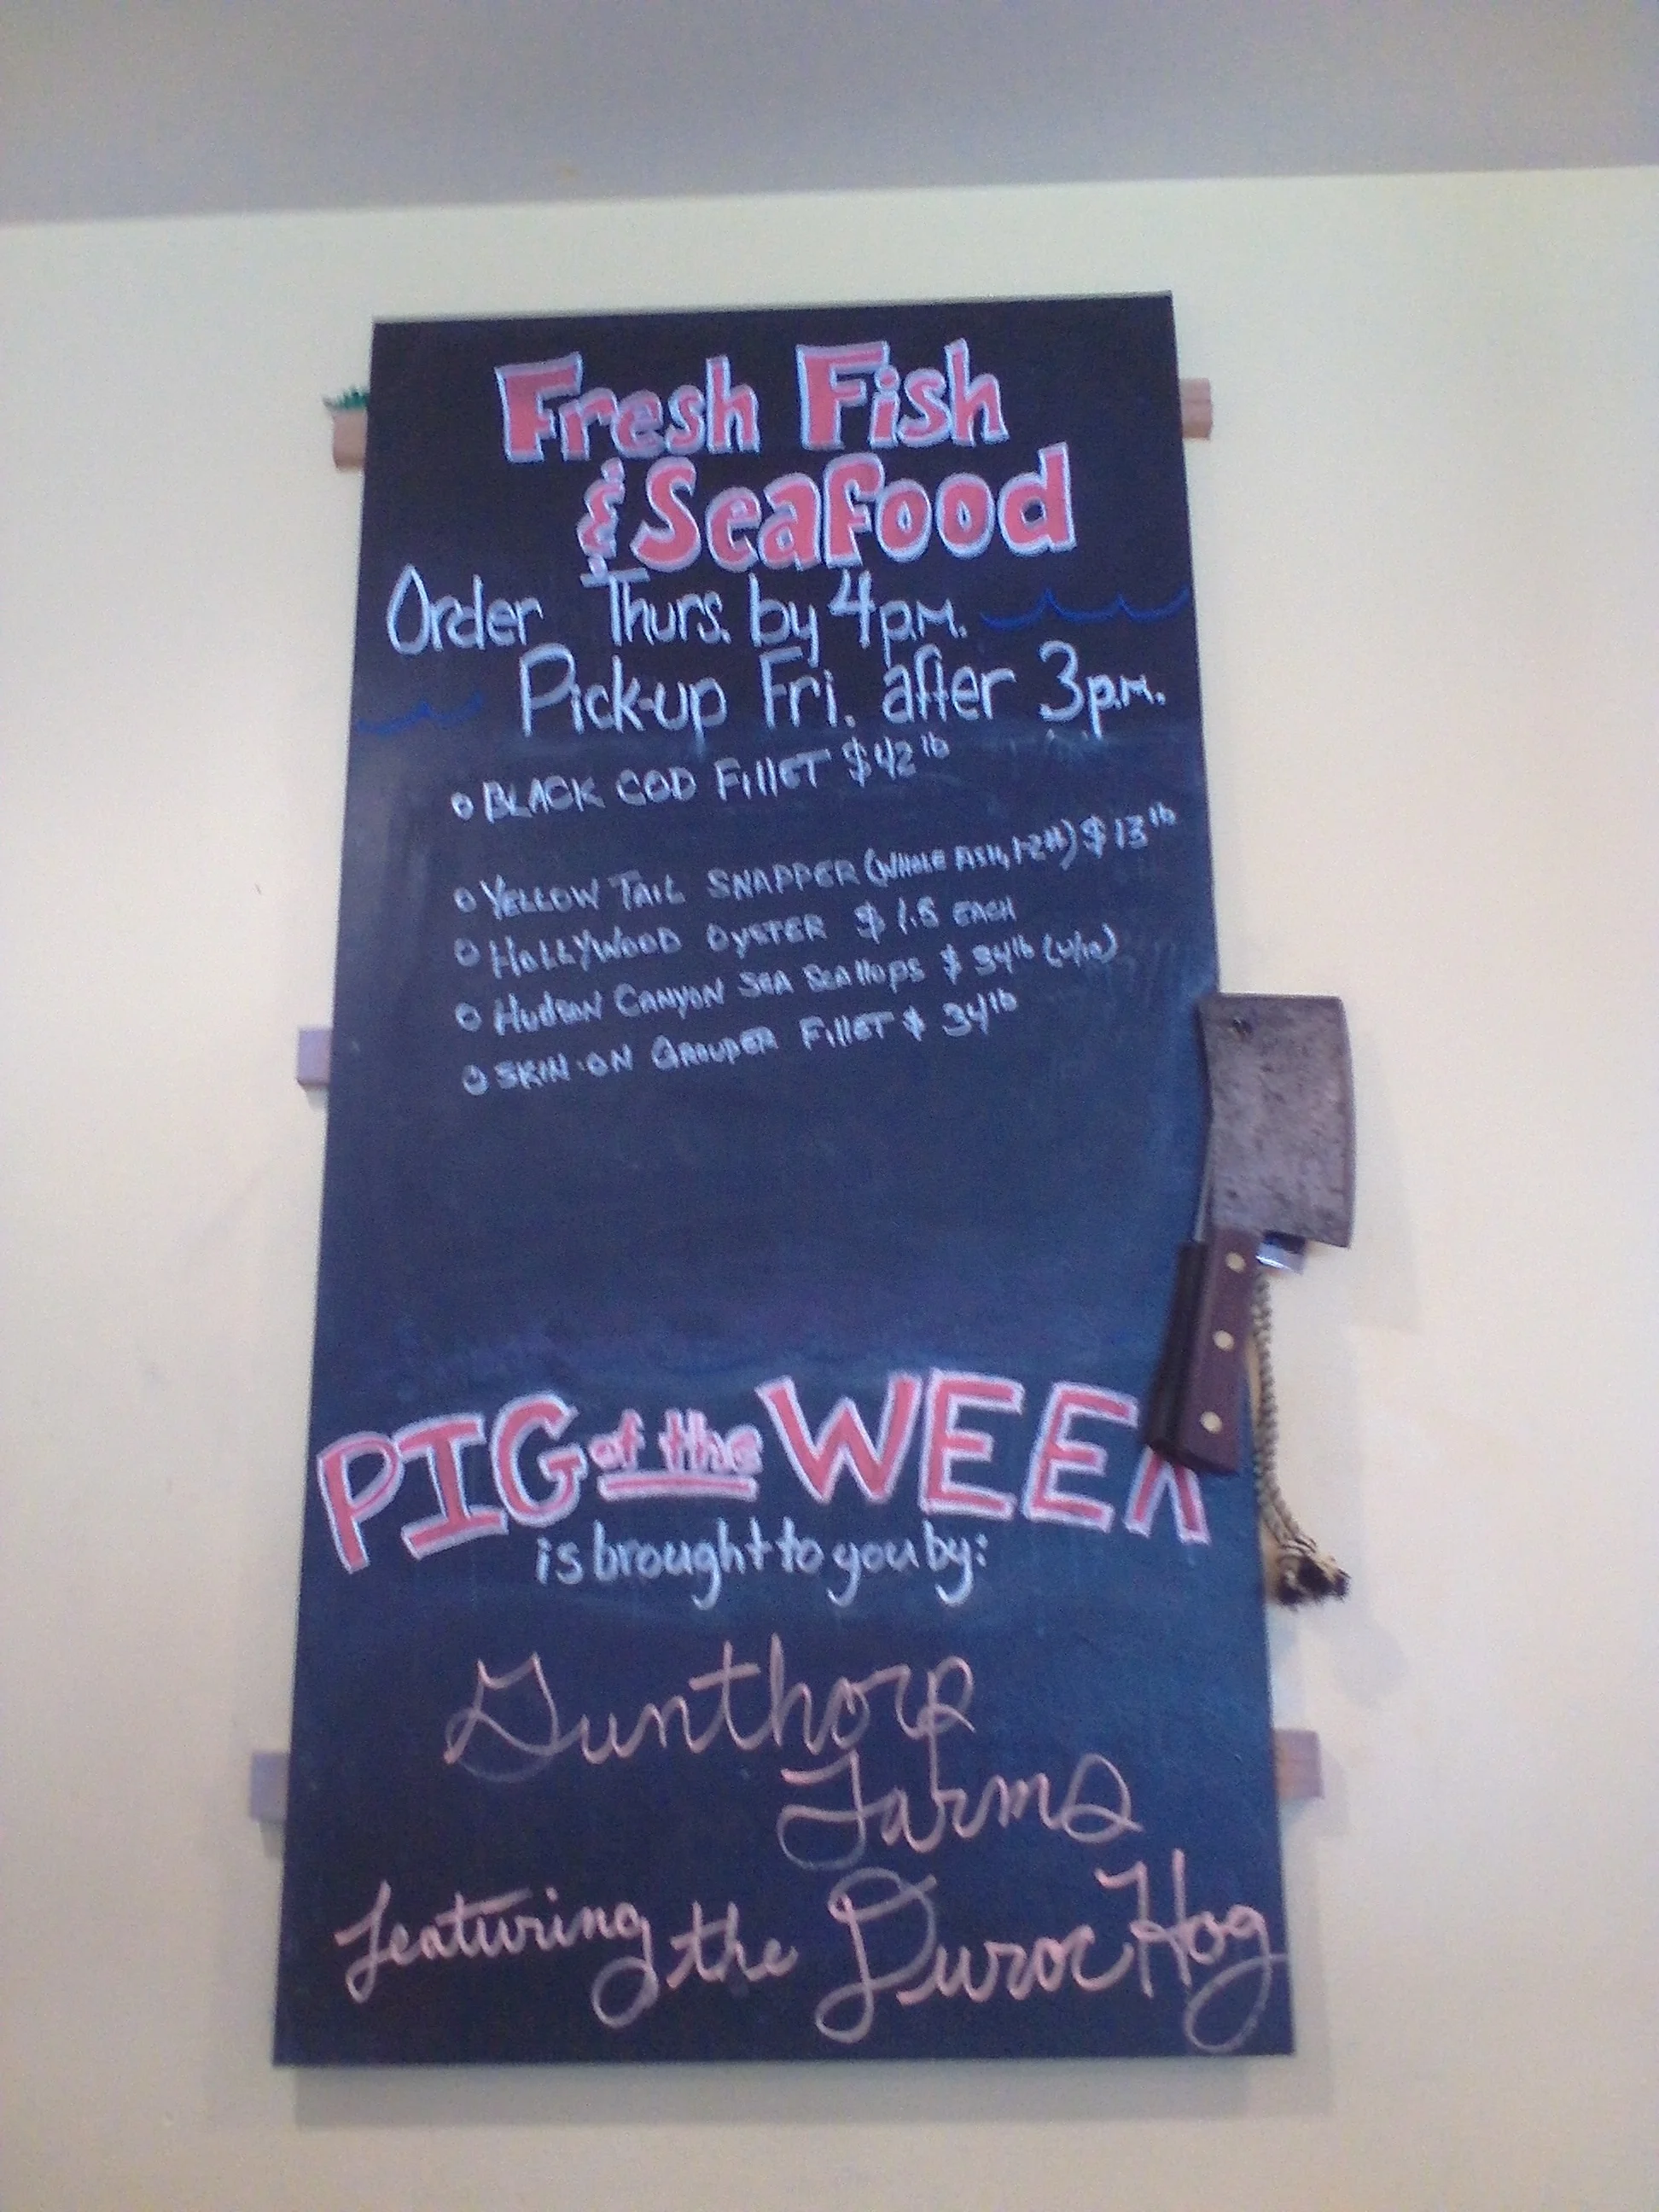 Fresh Fish
& Seafood
Order Thurs. by 4 p.m.
Pick-up Fri. after 3 p.m.
BLACK COD FillET $42 lb
YELLOW TAIL SNAPPER (WHOLE FISH, 1-2#) $13 lb
HOLLYWOOD OYSTER $1.5 EACH
HUDSON CANYON SEA SCAllOPS $34 lb (u/10)
SKIN-ON GROUPER FillET $34 lb
PIG of the WEEK
is brought to you by:
Gunthorp
Farms
featuring the Duroc Hog